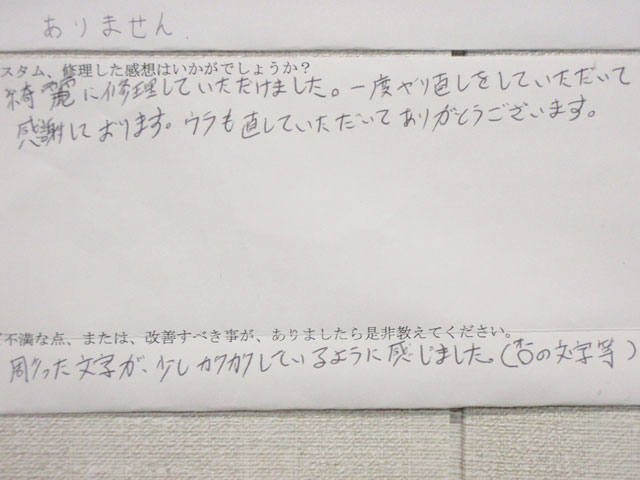 ありません.
スタム、修理した感想はいかがでしょうか？
綺麗に修理していただけました。一度やり直しをしていただいて
感謝しております。ウラも直していただいてありがとうございます。
ご不満な点、または、改善すべき事が、ありましたら是非教えてください。
彫った文字が、少しカクカクしているように感じました。(杏の文字等)